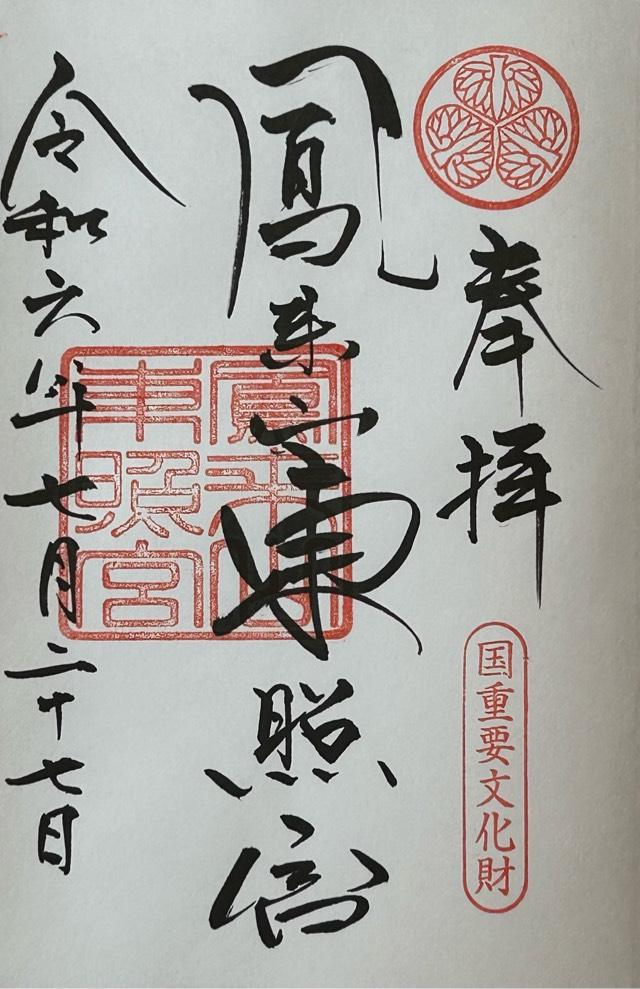 奉拝
国重要文化財
鳳来山東照宮
東照宮
令和六年七月二十七日